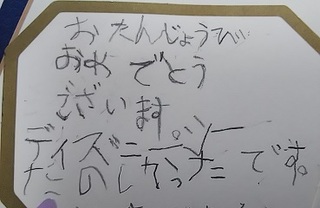 おたんじょうび
おめでとう
ございます。
ディズニーシー
たのしかったです。